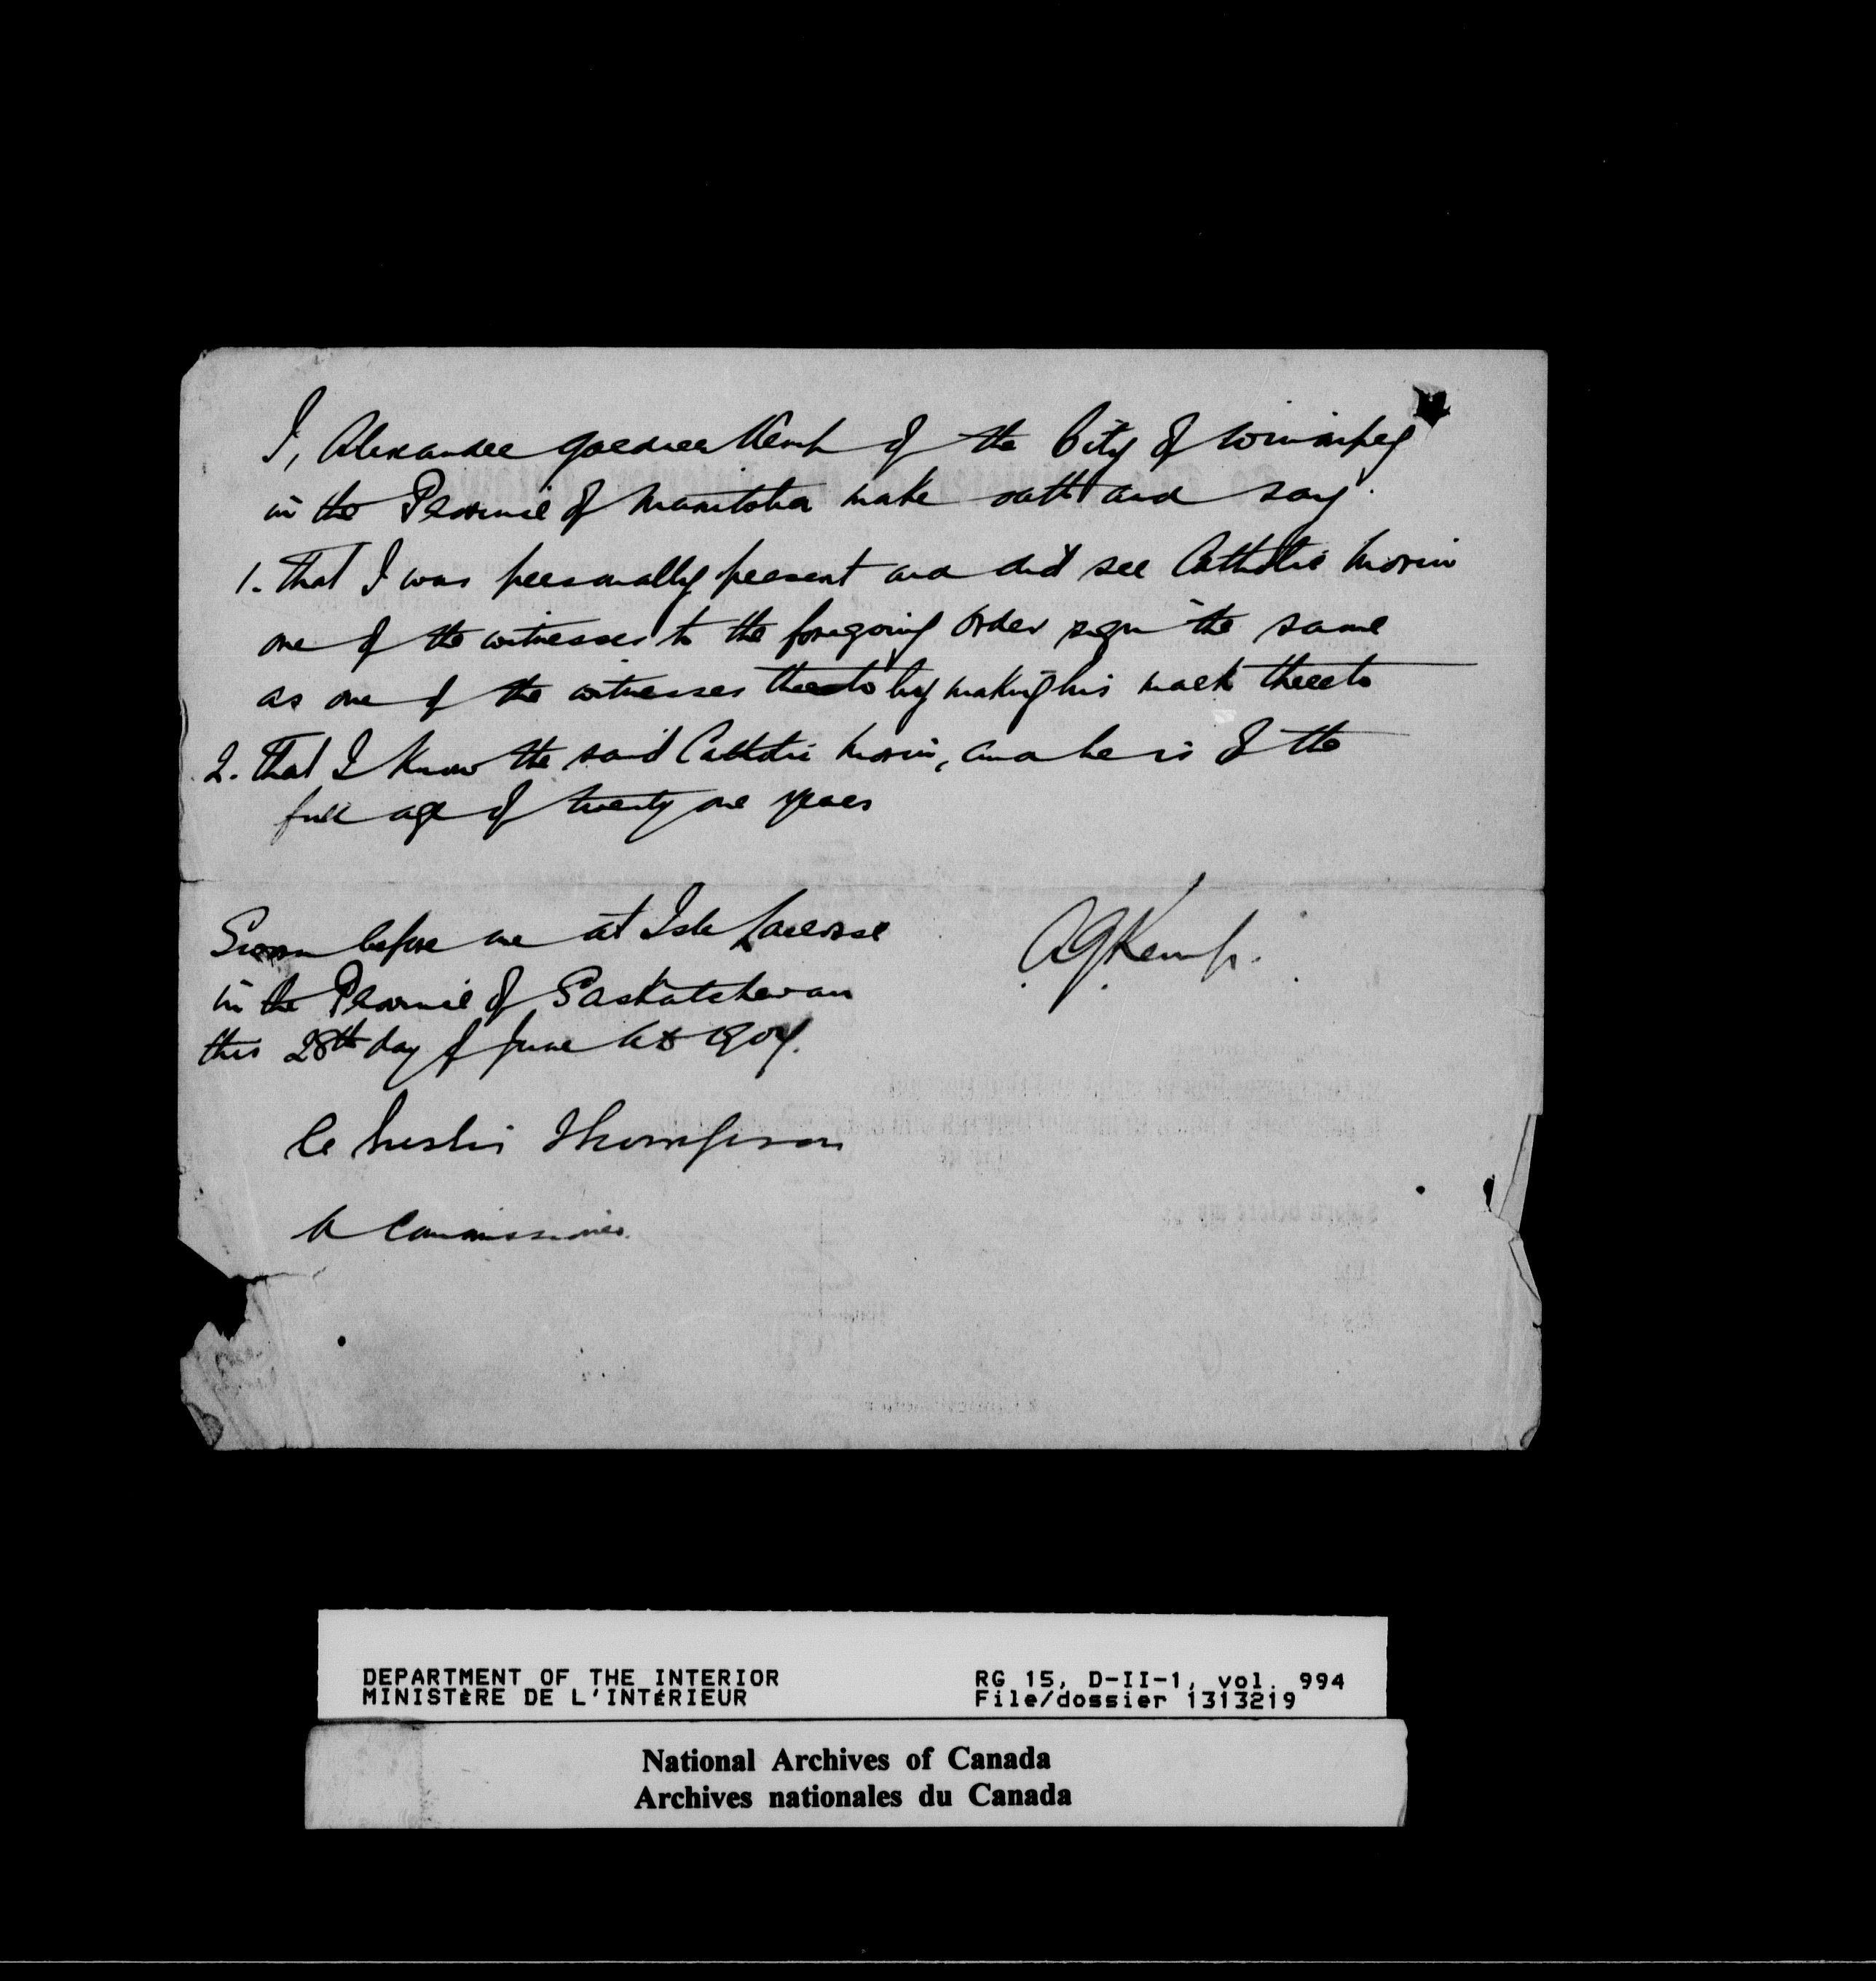 I, Alexander Gardner Kemp of the City of Winnipeg
in the Province of Manitoba make oath and say.
1. That I was personally present and did see Catholic Morin
one of the witnesses to the foregoing Order sign the same
as one of the witnesses thereto by making his mark thereto
2. That I know the said Catholic Morin, and he is of the
full age of twenty one years
Sworn before me at Isle Lacrosse
in the Province of Saskatchewan
this 28th day of June AD 1907.
A G Kemp.
Thompson
A Commissioner.
DEPARTMENT OF THE INTERIOR
MINISTÈRE DE L'INTÉRIEUR
RG 15, D-II-1, vol. 994
File/dossier 1313219
National Archives of Canada
Archives nationales du Canada